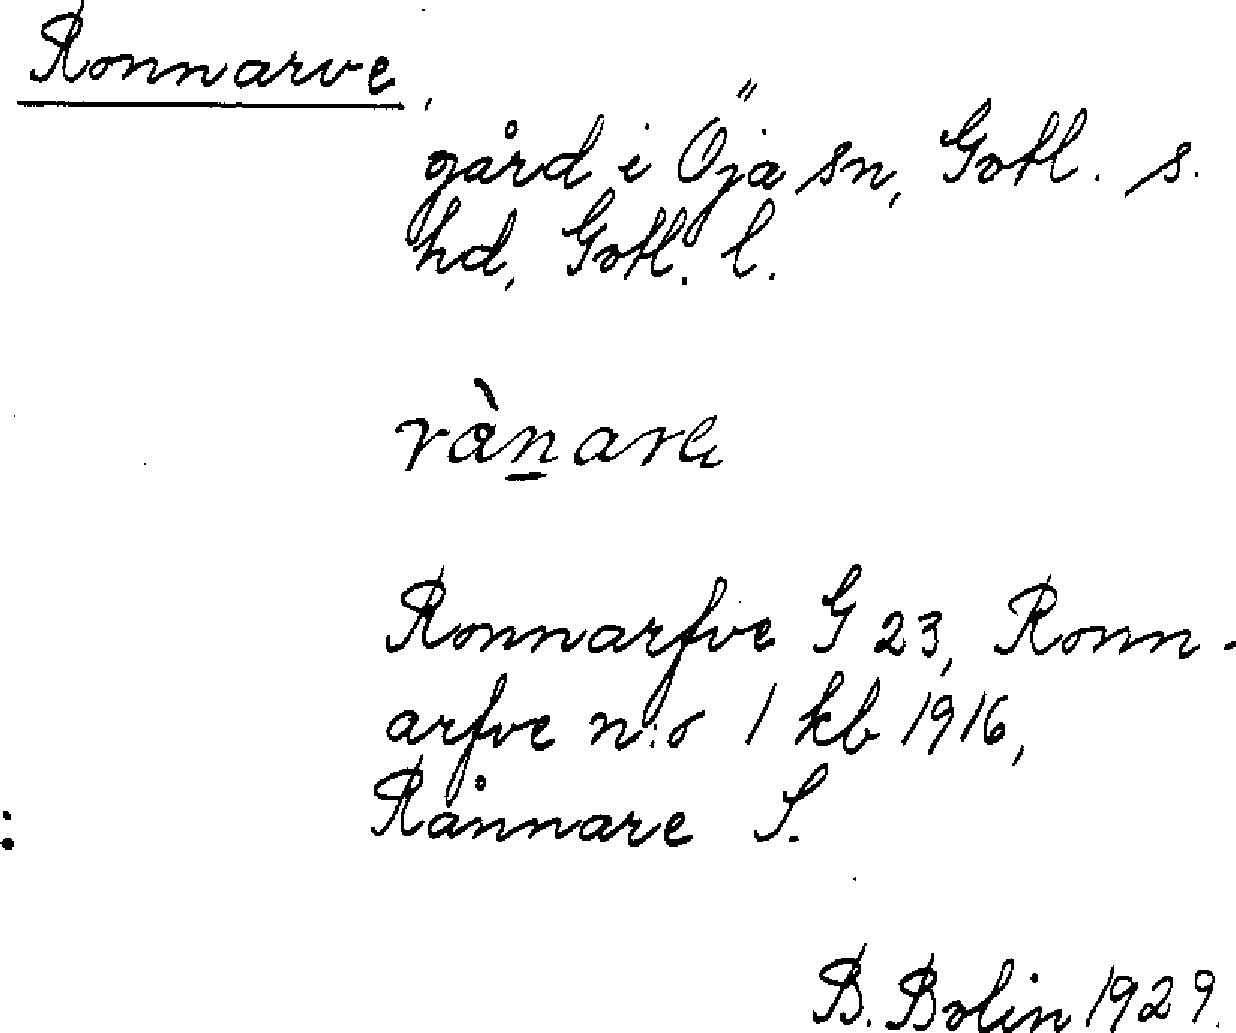 Ronnarve,
gård i Öja sn, Gotl. s.
hd, Gotl. l.
rànare
Ronnarfve G 23, Ronn-
arfve n:o 1 kb 1916,
Rånnare S.
B. Bolin 1929.